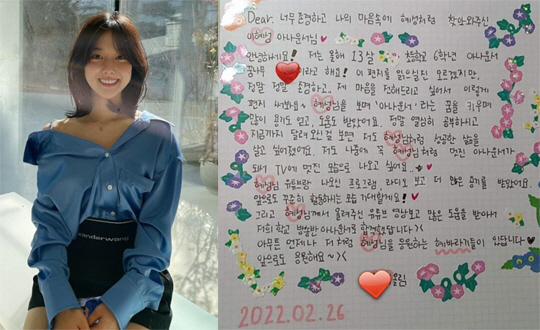 anderwang
Dear. 너무 존경하고 나의 마음속에 혜성처럼 찾아와주신
이혜성 아나운서님♥
안녕하세요! 저는 올해 13살 초등학교 6학년 아나운서
꿈나무 이라고 해요! 이 편지를 읽으실진 모르겠지만,
정말 정말 존경하고, 제 마음을 전해드리고 싶어서 이렇게
편지 써봐요~ 혜성님을 보며 '아나운서' 라는 꿈을 키우며
많이 용기도 얻고, 도움도 받았어요. 정말 열심히 공부하시고
지금까지 달려오신 걸 보면 저도 혜성님처럼 성공한 삶을
살고 싶어졌어요. 저도 나중에 꼭 혜성님처럼 멋진 아나운서가
돼서 TV에 멋진 모습으로 나오고 싶어요..♥
혜성님 유튜브랑 나오신 프로그램, 라디오 보고 더 많은 용기를 받았어요.
앞으로도 꾸준히 활동하시는 모습 기대할게요!♥
그리고 혜성님께서 올려주신 유튜브 영상보고 많은 도움을 받아서
저희 학교 방송반 아나운서로 합격했답니다><
아무튼 언제나 저처럼 혜성님을 응원하는 해바라기들이 있답니다♥
앞으로도 응원해요~><
올림
2022.02.26